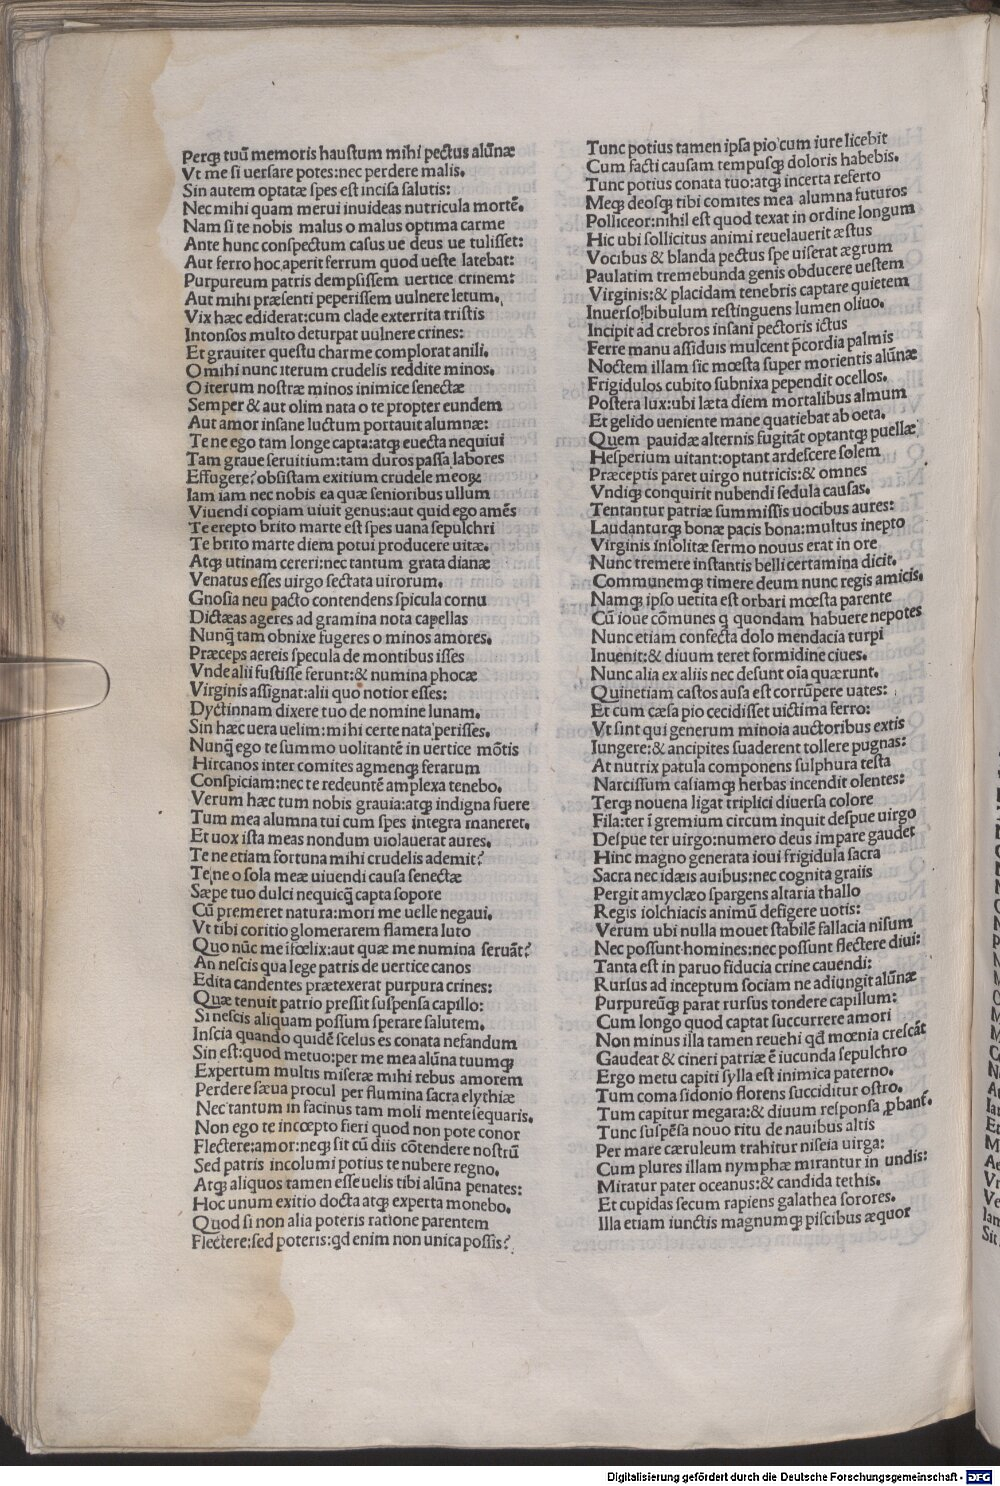 Perq; tuū memoris haustum mihi pectus alūnæ
Vt me si uersare potes:nec perdere malis.
Sin autem optatæ spes est incisa salutis:
Nec mihi quam merui inuideas nutricula mortē.
Nam si te nobis malus o malus optima carme
Ante hunc conspectum casus ue deus ue tulisset:
Aut ferro hoc aperit ferrum quod ueste latebat:
Purpureum patris dempsissem uertice crinem:
Aut mihi præsenti peperissem uulnere letum.
Vix hæc ediderat:cum clade exterrita tristis
Intonsos multo deturpat uulnere crines:
Et grauiter questu charme complorat anili.
O mihi nunc iterum crudelis reddite minos.
O iterum nostræ minos inimice senectæ
Semper & aut olim nata o te propter eundem
Aut amor insane luctum portauit alumnæ:
Te ne ego tam longe capta:atq; euecta nequiui
Tam graue seruitium:tam duros passa labores
Effugere?obsistam exitium crudele meoꝝ:
Iam iam nec nobis ea quæ senioribus ullum
Viuendi copiam uiuit genus:aut quid ego amēs
Te erepto brito marte est spes uana sepulchri
Te brito marte diem potui producere uitæ.
Atq; utinam cereri:nec tantum grata dianæ
Venatus esses uirgo sectata uirorum.
Gnosia neu pacto contendens spicula cornu
Dictæas ageres ad gramina nota capellas
Nunq̄ tam obnixe fugeres o minos amores.
Præceps aereis specula de montibus isses
Vnde alii fustisse ferunt:& numina phocæ
Virginis assignat:alii quo notior esses:
Dyctinnam dixere tuo de nomine lunam.
Sin hæc uera uelim:mihi certe nata perisses.
Nunq̄ ego te summo uolitantē in uertice mōtis
Hircanos inter comites agmenq; ferarum
Conspiciam:nec te redeuntē amplexa tenebo.
Verum hæc tum nobis grauia:atq; indigna fuere
Tum mea alumna tui cum spes integra maneret.
Et uox ista meas nondum uiolauerat aures.
Te ne etiam fortuna mihi crudelis ademit?
Te ne o sola meæ uiuendi causa senectæ
Sæpe tuo dulci nequicq̄ capta sopore
Cū premeret natura:mori me uelle negaui.
Vt tibi coritio glomerarem flamera luto
Quo nūc me ifœlix:aut quæ me numina seruāt?
An nescis qua lege patris de uertice canos
Edita candentes prætexerat purpura crines:
Quæ tenuit patrio pressit suspensa capillo:
Si nescis aliquam possum sperare salutem.
Inscia quando quidē scelus es conata nefandum
Sin est:quod metuo:per me mea alūna tuumq;
Expertum multis miseræ mihi rebus amorem
Perdere sæua procul per flumina sacra elythiæ
Nec tantum in facinus tam moli mente sequaris.
Non ego te incœpto fieri quod non pote conor
Flectere:amor:neq; sit cū diis cōtendere nostrū
Sed patris incolumi potius te nubere regno.
Atq; aliquos tamen esse uelis tibi alūna penates:
Hoc unum exitio docta atq; experta monebo.
Quod si non alia poteris ratione parentem
Flectere:sed poteris:qd enim non unica possis?
Tunc potius tamen ipsa pio cum iure licebit
Cum facti causam tempusq; doloris habebis.
Tunc potius conata tuo:atq; incerta referto
Meq; deosq; tibi comites mea alumna futuros
Polliceor:nihil est quod texat in ordine longum
Hic ubi sollicitus animi reuelauerit æstus
Vocibus & blanda pectus spe uiserat ægrum
Paulatim tremebunda genis obducere uestem
Virginis:& placidam tenebris captare quietem
Inuerso!bibulum restinguens lumen oliuo.
Incipit ad crebros insani pectoris ictus
Ferre manu assiduis mulcent p̄cordia palmis
Noctem illam sic mœsta super morientis alūnæ
Frigidulos cubito subnixa pependit ocellos.
Postera lux:ubi læta diem mortalibus almum
Et gelido ueniente mane quatiebat ab oeta.
Quem pauidæ alternis fugitāt optantq; puellæ
Hesperium uitant:optant ardescere solem
Præceptis paret uirgo nutricis:& omnes
Vndiq; conquirit nubendi sedula causas.
Tentantur patriæ summissis uocibus aures:
Laudanturq; bonæ pacis bona:multus inepto
Virginis insolitæ sermo nouus erat in ore
Nunc tremere instantis belli certamina dicit.
Communemq; timere deum nunc regis amicis.
Namq; ipso uetita est orbari mœsta parente
Cū ioue cōmunes q quondam habuere nepotes
Nunc etiam confecta dolo mendacia turpi
Inuenit:& diuum teret formidine ciues.
Nunc alia ex aliis nec desunt oīa quærunt.
Quinetiam castos ausa est corrūpere uates:
Et cum cæsa pio cecidisset uictima ferro:
Vt sint qui generum minoia auctoribus extis
Iungere:& ancipites suaderent tollere pugnas:
At nutrix patula componens sulphura testa
Narcissum casiamq; herbas incendit olentes:
Terq; nouena ligat triplici diuersa colore
Fila:ter ī gremium circum inquit despue uirgo
Despue ter uirgo:numero deus impare gaudet
Hinc magno generata ioui frigidula sacra
Sacra nec idæis auibus:nec cognita graiis
Pergit amyclæo spargens altaria thallo
Regis iolchiacis animū defigere uotis:
Verum ubi nulla mouet stabilē fallacia nisum
Nec possunt homines:nec possunt flectere diui:
Tanta est in paruo fiducia crine cauendi:
Rursus ad inceptum sociam ne adiungit alūnæ
Purpureūq; parat rursus tondere capillum:
Cum longo quod captat succurrere amori
Non minus illa tamen reuehi qd mœnia crescāt
Gaudeat & cineri patriæ ē iucunda sepulchro
Ergo metu capiti sylla est inimica paterno.
Tum coma sidonio florens succiditur ostro.
Tum capitur megara:& diuum responsa ꝓbant.
Tunc suspēsa nouo ritu de nauibus altis
Per mare cæruleum trahitur niseia uirga:
Cum plures illam nymphæ mirantur in undis:
Miratur pater oceanus:& candida tethis.
Et cupidas secum rapiens galathea sorores.
Illa etiam iunctis magnumq; piscibus æquor
Digitalisierung gefördert durch die Deutsche Forschungsgemeinschaft - DFG